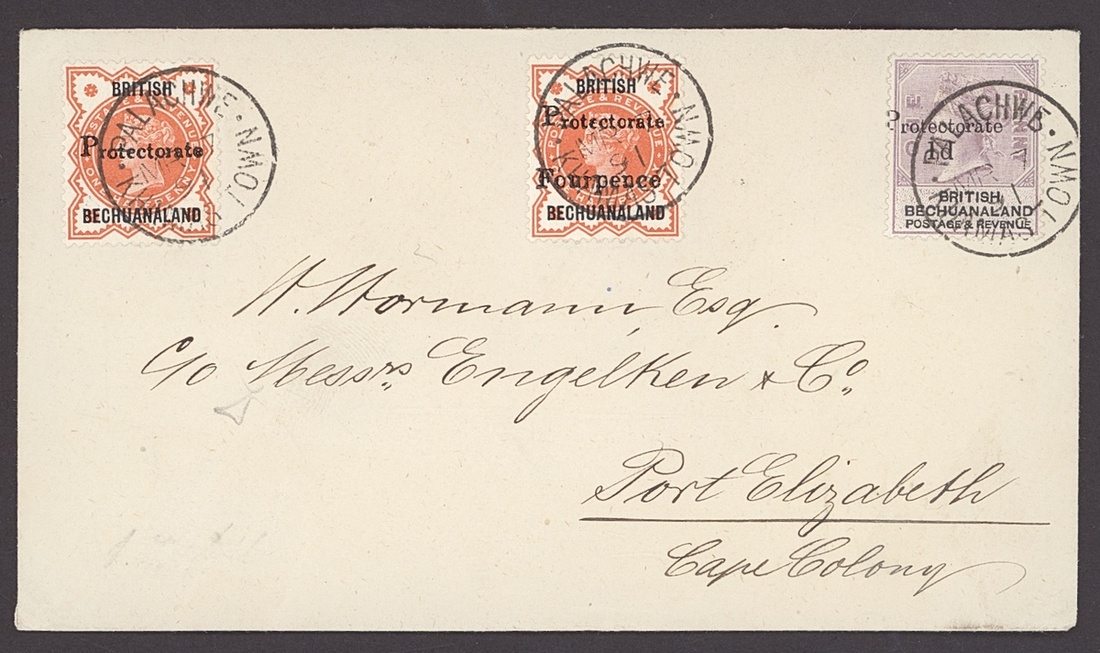 BRITISH
Protectorate
BECHUANALAND
PALACHWE · TOWN
BRITISH
Protectorate
Fourpence
BECHUANALAND
POSTAGE & REVENUE
PALACHWE · TOWN
91
Protectorate
1d
ONE PENNY
BRITISH
BECHUANALAND
POSTAGE & REVENUE
PALACHWE · TOWN
91
W. Wormann, Esq.
C/o Messrs. Engelken & Co.
Port Elizabeth
Cape Colony